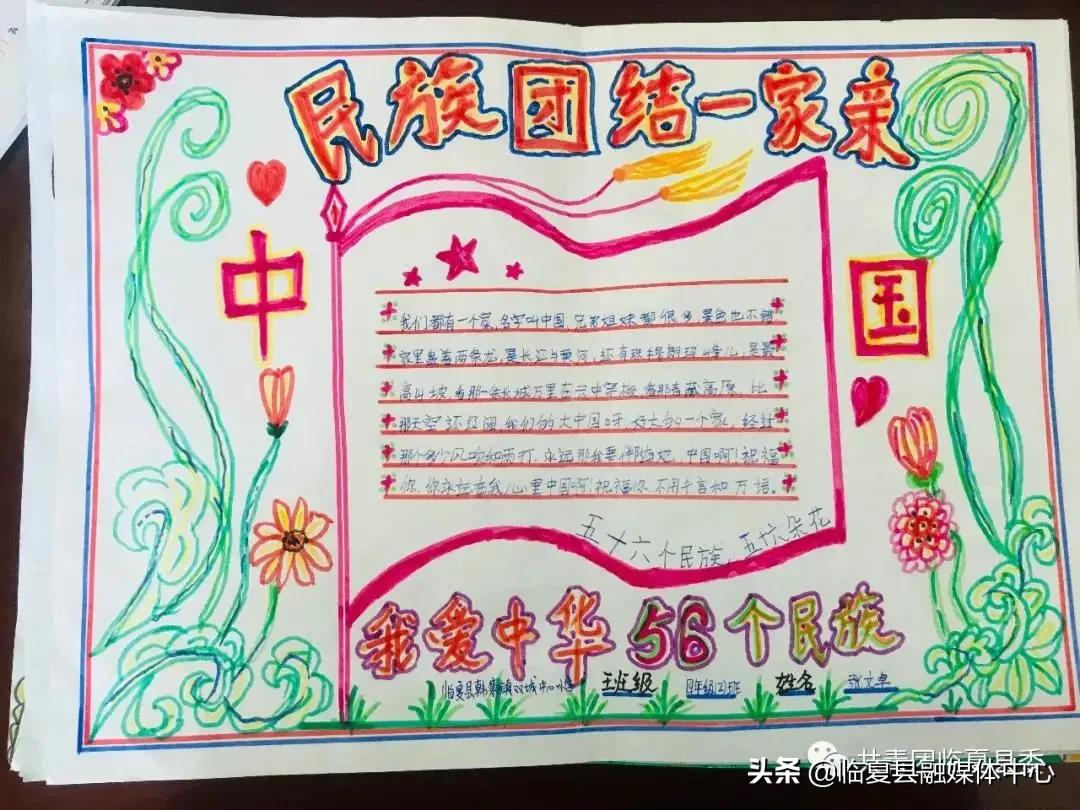 民族团结一家亲
中
国
我们都有一个家,名字叫中国,兄弟姐妹都很多,景色也不错
家里盘着两条龙,是长江与黄河,还有珠穆朗玛峰儿,是最
高山坡,看那一条长城万里在云中穿梭,看那青藏高原,比
那天空还辽阔,我们的大中国呀,好大的一个家,经过
那个多少风吹和雨打,永远那我要伴随她,中国啊!祝福
你,你永远在我心里中国啊!祝福你不用千言和万语。
五十六个民族,五十六朵花
我爱中华56个民族
临夏县韩集镇双城中心小学 班级 四年级(2)班 姓名 张文卓
共青团临夏县委
头条@临夏县融媒体中心